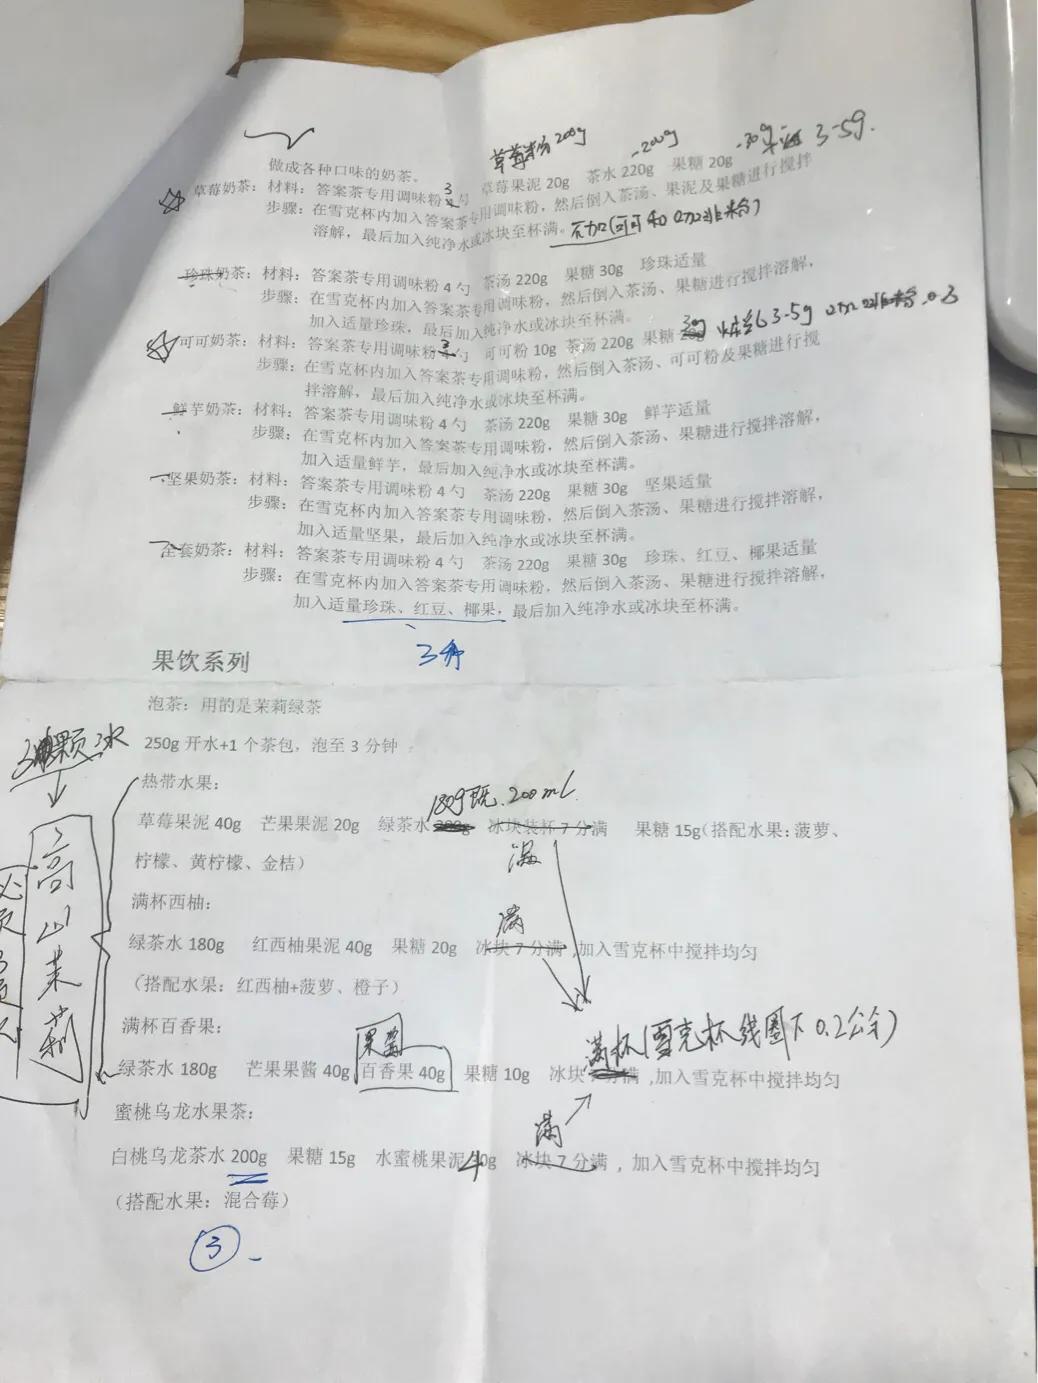 草莓粉200g
-200g
-30g
3-5g.
做成各种口味的奶茶。
草莓奶茶：材料：答案茶专用调味粉 3 勺 草莓果泥 20g 茶水 220g 果糖 20g
步骤：在雪克杯内加入答案茶专用调味粉，然后倒入茶汤、果泥及果糖进行搅拌
溶解，最后加入纯净水或冰块至杯满。
珍珠奶茶：材料：答案茶专用调味粉 4 勺 茶汤 220g 果糖 30g 珍珠适量
步骤：在雪克杯内加入答案茶专用调味粉，然后倒入茶汤、果糖进行搅拌溶解，
加入适量珍珠，最后加入纯净水或冰块至杯满。
可可奶茶：材料：答案茶专用调味粉 3 勺 可可粉 10g 茶汤 220g 果糖 3-5g
步骤：在雪克杯内加入答案茶专用调味粉，然后倒入茶汤、可可粉及果糖进行搅
拌溶解，最后加入纯净水或冰块至杯满。
鲜芋奶茶：材料：答案茶专用调味粉 4 勺 茶汤 220g 果糖 30g 鲜芋适量
步骤：在雪克杯内加入答案茶专用调味粉，然后倒入茶汤、果糖进行搅拌溶解，
加入适量鲜芋，最后加入纯净水或冰块至杯满。
坚果奶茶：材料：答案茶专用调味粉 4 勺 茶汤 220g 果糖 30g 坚果适量
步骤：在雪克杯内加入答案茶专用调味粉，然后倒入茶汤、果糖进行搅拌溶解，
加入适量坚果，最后加入纯净水或冰块至杯满。
全套奶茶：材料：答案茶专用调味粉 4 勺 茶汤 220g 果糖 30g 珍珠、红豆、椰果适量
步骤：在雪克杯内加入答案茶专用调味粉，然后倒入茶汤、果糖进行搅拌溶解，
加入适量珍珠、红豆、椰果，最后加入纯净水或冰块至杯满。
果饮系列
泡茶：用的是茉莉绿茶
250g 开水+1 个茶包，泡至 3 分钟
热带水果：
180g既.200mL
草莓果泥 40g 芒果果泥 20g 绿茶水 200g 冰块装杯 7 分满 果糖 15g（搭配水果：菠萝、
满
柠檬、黄柠檬、金桔）
满杯西柚：
满
绿茶水 180g 红西柚果泥 40g 果糖 20g 冰块 7 分满 ,加入雪克杯中搅拌均匀
（搭配水果：红西柚+菠萝、橙子）
满杯百香果：
果酱
满杯（雪克杯线圈下0.2公分）
绿茶水 180g 芒果果酱 40g 百香果 40g 果糖 10g 冰块 ,加入雪克杯中搅拌均匀
蜜桃乌龙水果茶：
满
白桃乌龙茶水 200g 果糖 15g 水蜜桃果泥 40g 冰块 7 分满 ，加入雪克杯中搅拌均匀
（搭配水果：混合莓）
3
高山茉莉